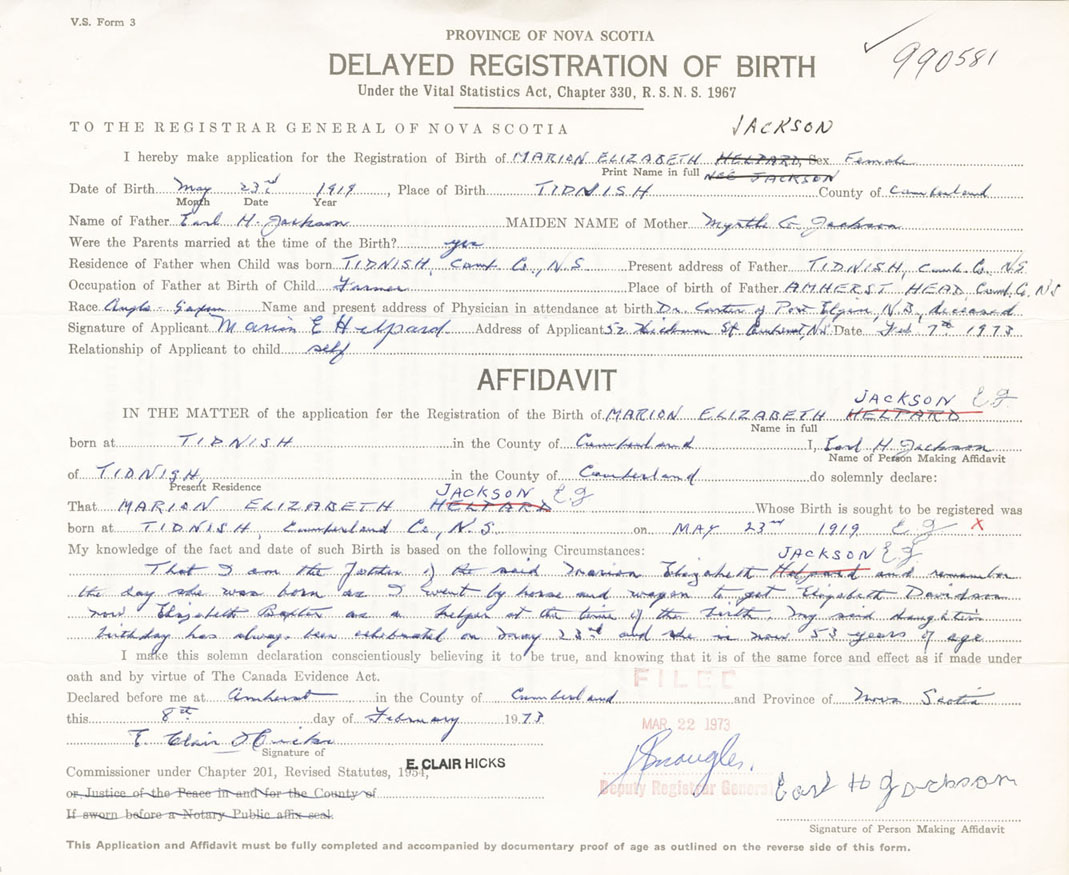 V.S. Form 3
PROVINCE OF NOVA SCOTIA
990581
DELAYED REGISTRATION OF BIRTH
Under the Vital Statistics Act, Chapter 330, R.S.N.S. 1967
TO THE REGISTRAR GENERAL OF NOVA SCOTIA
JACKSON
I hereby make application for the Registration of Birth of MARION ELIZABETH HELPARD, Sex Female
Print Name in full NEE JACKSON
Date of Birth May 23rd 1919, Place of Birth TIDNISH County of Cumberland
Month Date Year
Name of Father Earl H. Jackson MAIDEN NAME of Mother Myrtle G. Jackson
Were the Parents married at the time of the Birth? yes
Residence of Father when Child was born TIDNISH, Cumb. Co., N.S. Present address of Father TIDNISH, Cumb. Co. N.S
Occupation of Father at Birth of Child Farmer Place of birth of Father AMHERST HEAD, Cumb. Co. N.S
Race Anglo-Saxon Name and present address of Physician in attendance at birth Dr. Carter of Port Elgin, N.B., deceased
Signature of Applicant Marion E Helpard Address of Applicant 52 St. Amherst, N.S. Date Feb 7th 1973
Relationship of Applicant to child self
AFFIDAVIT
JACKSON EG
IN THE MATTER of the application for the Registration of the Birth of MARION ELIZABETH HELPARD
Name in full
born at TIDNISH in the County of Cumberland I, Earl H. Jackson
Name of Person Making Affidavit
of TIDNISH, in the County of Cumberland do solemnly declare:
Present Residence
JACKSON EG
That MARION ELIZABETH HELPARD Whose Birth is sought to be registered was
born at TIDNISH, Cumberland Co., N.S. on MAY 23rd 1919 EG X
My knowledge of the fact and date of such Birth is based on the following Circumstances:
JACKSON EG
That I am the father of the said Marion Elizabeth Helpard and remember
the day she was born as I went by horse and wagon to get Elizabeth Davidson
now Elizabeth Baxter as a helper at the time of the birth. My said daughter's
birthday has always been celebrated on May 23rd and she is now 53 years of age
I make this solemn declaration conscientiously believing it to be true, and knowing that it is of the same force and effect as if made under
oath and by virtue of The Canada Evidence Act.
FILED
Declared before me at Amherst in the County of Cumberland and Province of Nova Scotia
this 8th day of February 1973
MAR. 22 1973
E. Clair Hicks
Signature of
E. CLAIR HICKS
Commissioner under Chapter 201, Revised Statutes, 1954,
Deputy Registrar General
Earl H Jackson
or Justice of the Peace in and for the County of
If sworn before a Notary Public affix seal.
Signature of Person Making Affidavit
This Application and Affidavit must be fully completed and accompanied by documentary proof of age as outlined on the reverse side of this form.